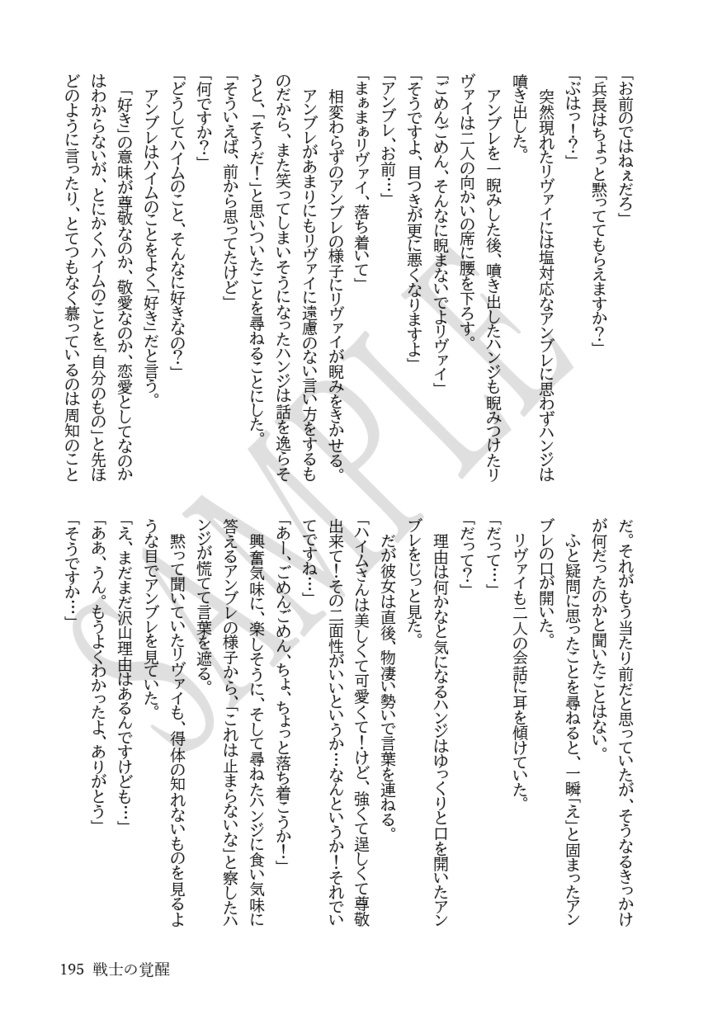 「お前のではねぇだろ」
「兵長はちょっと黙っててもらえますか？」
「ぶはっ！？」
　突然現れたリヴァイには塩対応なアンブレに思わずハンジは
噴き出した。
　アンブレを一睨みした後、噴き出したハンジも睨みつけたリ
ヴァイは二人の向かいの席に腰を下ろす。
「ごめんごめん、そんなに睨まないでよリヴァイ」
「そうですよ、目つきが更に悪くなりますよ」
「アンブレ、お前…」
「まぁまぁリヴァイ、落ち着いて」
　相変わらずのアンブレの様子にリヴァイが睨みをきかせる。
　アンブレがあまりにもリヴァイに遠慮のない言い方をするも
のだから、また笑ってしまいそうになったハンジは話を逸らそ
うと、「そうだ！」と思いついたことを尋ねることにした。
「そういえば、前から思ってたけど」
「何ですか？」
「どうしてハイムのこと、そんなに好きなの？」
　アンブレはハイムのことをよく「好き」だと言う。
　「好き」の意味が尊敬なのか、敬愛なのか、恋愛としてなのか
はわからないが、とにかくハイムのことを「自分のもの」と先ほ
どのように言ったり、とてつもなく慕っているのは周知のこと
だ。それがもう当たり前だと思っていたが、そうなるきっかけ
が何だったのかと聞いたことはない。
　ふと疑問に思ったことを尋ねると、一瞬「え」と固まったアン
ブレの口が開いた。
　リヴァイも二人の会話に耳を傾けていた。
「だって…」
「だって？」
　理由は何かなと気になるハンジはゆっくりと口を開いたアン
ブレをじっと見た。
　だが彼女は直後、物凄い勢いで言葉を連ねる。
「ハイムさんは美しくて可愛くて！けど、強くて逞しくて尊敬
出来て！その二面性がいいというか…なんというか！それでい
てですね…」
「あー、ごめんごめん、ちょ、ちょっと落ち着こうか！」
　興奮気味に、楽しそうに、そして尋ねたハンジに食い気味に
答えるアンブレの様子から、「これは止まらないな」と察したハ
ンジが慌てて言葉を遮る。
　黙って聞いていたリヴァイも、得体の知れないものを見るよ
うな目でアンブレを見ていた。
「え、まだまだ沢山理由はあるんですけども…」
「ああ、うん。もうよくわかったよ、ありがとう」
「そうですか…」
195 戦士の覚醒
SAMPLE